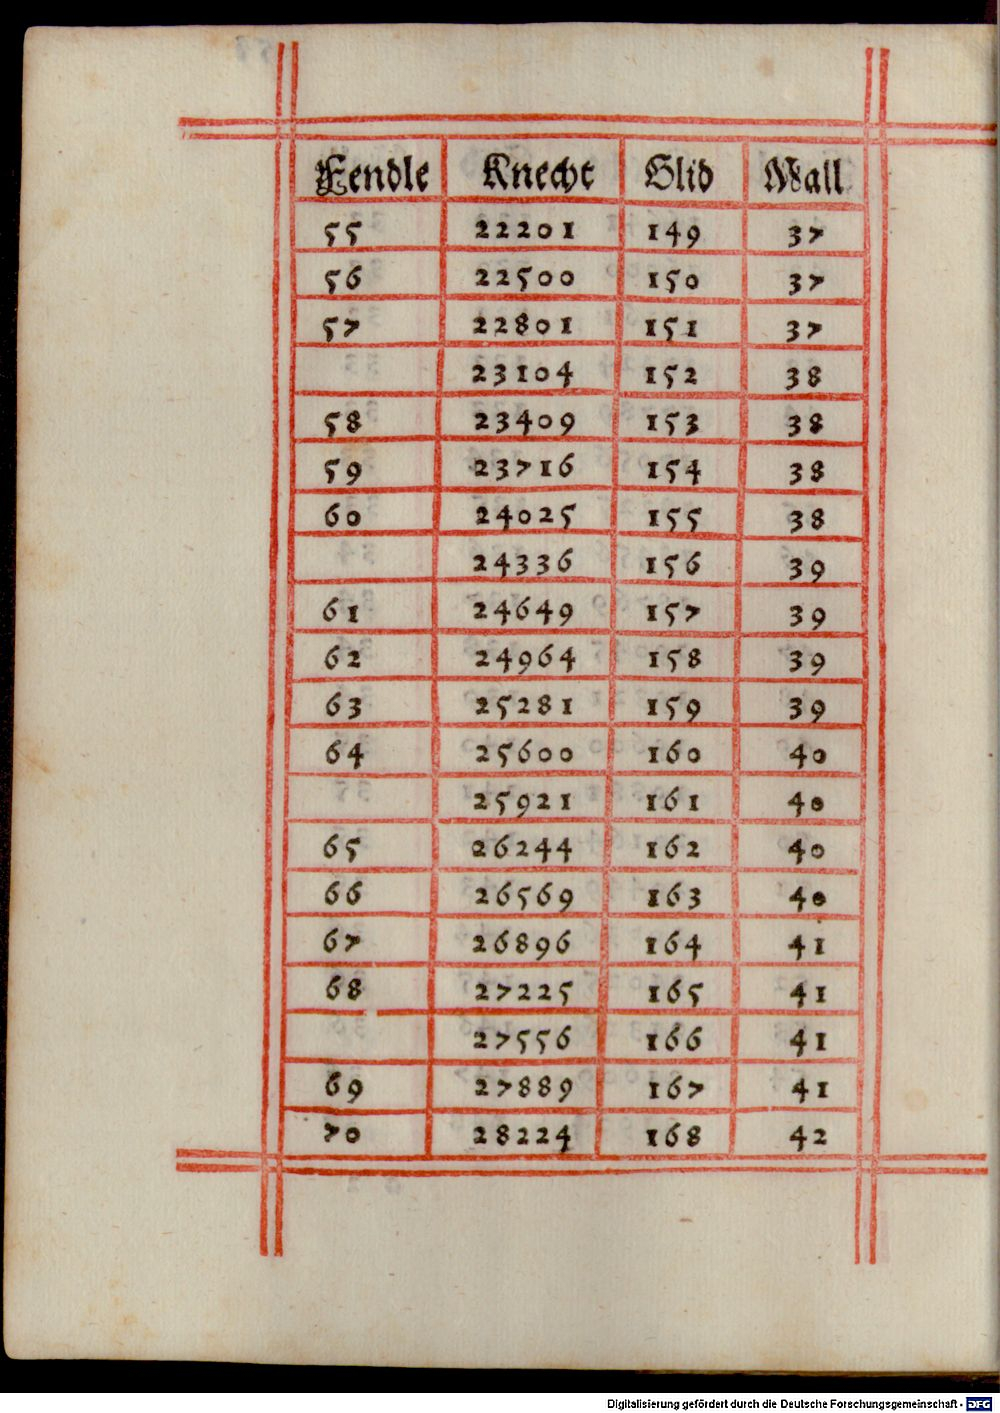 Fendle Knecht Glid Wall
55 22201 149 37
56 22500 150 37
57 22801 151 37
23104 152 38
58 23409 153 38
59 23716 154 38
60 24025 155 38
24336 156 39
61 24649 157 39
62 24964 158 39
63 25281 159 39
64 25600 160 40
25921 161 40
65 26244 162 40
66 26569 163 40
67 26896 164 41
68 27225 165 41
27556 166 41
69 27889 167 41
70 28224 168 42
Digitalisierung gefördert durch die Deutsche Forschungsgemeinschaft - DFG